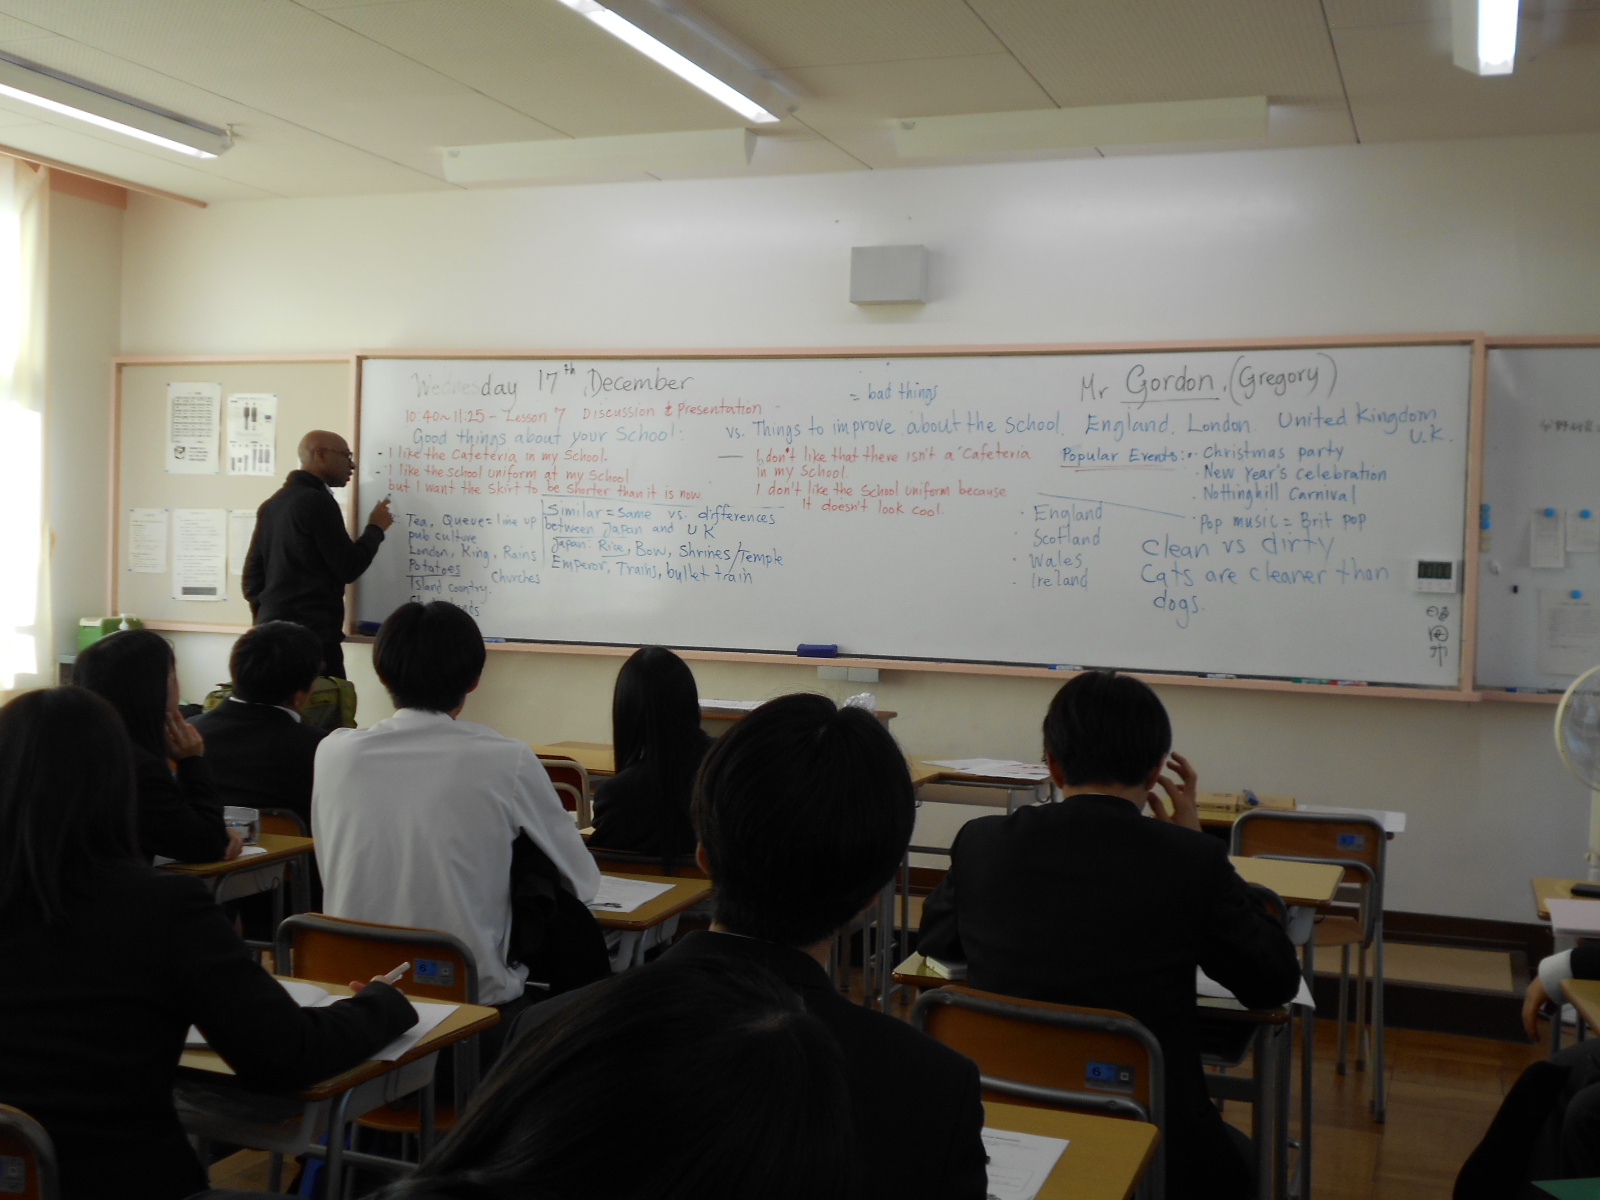 Wednesday 17th December
= bad things
Mr Gordon. (Gregory)
10:40~11:25 - Lesson 7 Discussion & Presentation
Good things about your School:
vs. Things to improve about the School.
England. London. United Kingdom
U.K.
- I like the Cafeteria in my School.
- I like the School uniform at my School
but I want the Skirt to be Shorter than it is now.
I don't like that there isn't a Cafeteria
in my School.
I don't like the School uniform because
It doesn't look cool.
Popular Events:
· Christmas party
· New Year's celebration
· Nottinghill Carnival
· Pop music = Brit pop
Tea, Queue = line up
pub culture
London, King, Rains
Potatoes
Churches
Island country.
Similar = same vs. differences
between Japan and UK
Japan: Rice, Bow, Shrines/Temple
Emperor, Trains, bullet train
· England
· Scotland
· Wales
· Ireland
Clean vs dirty
Cats are cleaner than
dogs.
6
6